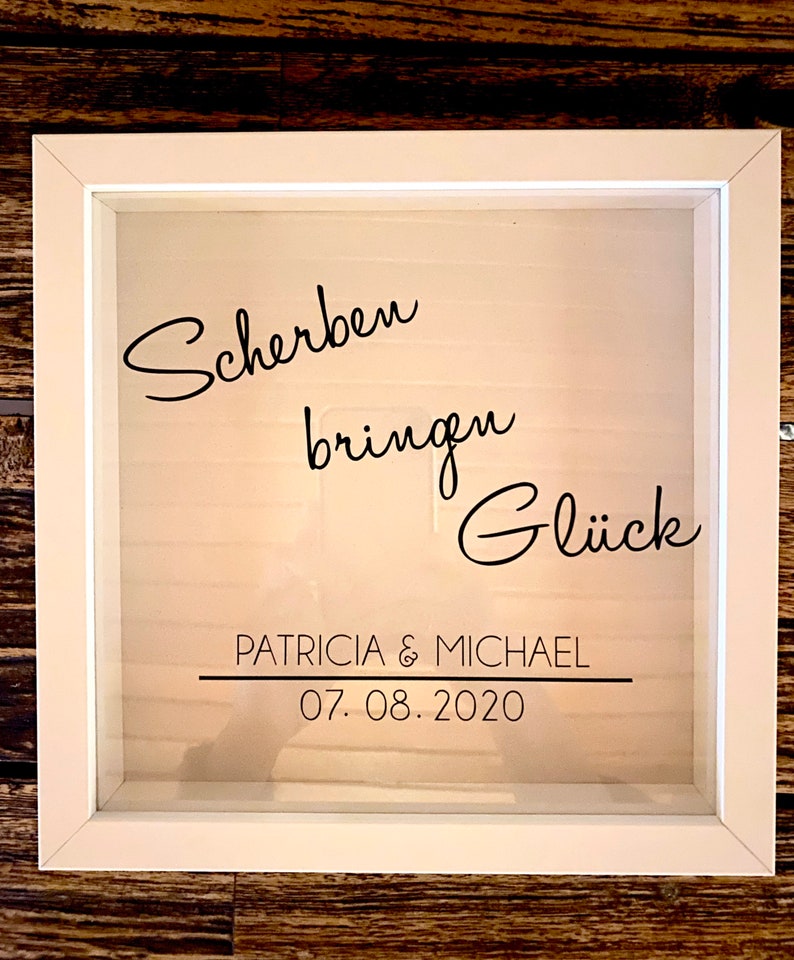 Scherben
bringen
Glück
PATRICIA & MICHAEL
07. 08. 2020